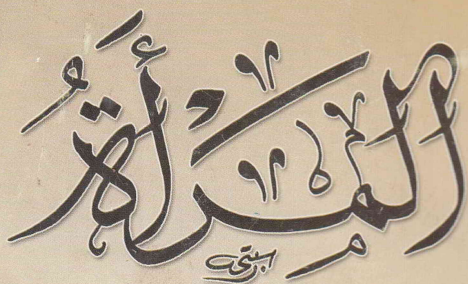 المرأةُ